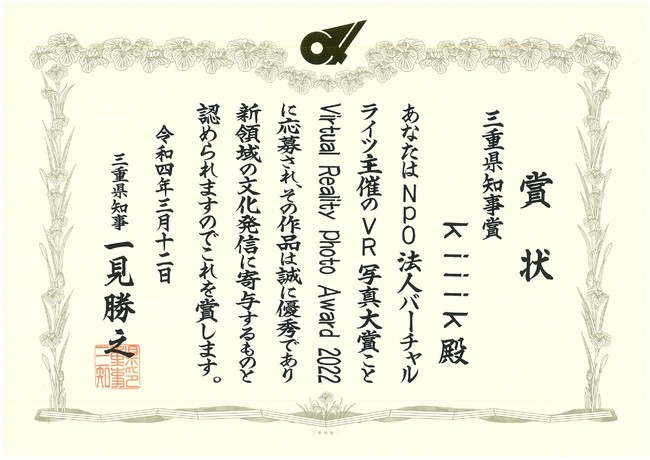 賞状
三重県知事賞
kiiik殿
あなたはNPO法人バーチャル
ライツ主催のVR写真大賞こと
Virtual Reality Photo Award 2022
に応募され、その作品は誠に優秀であり
新領域の文化発信に寄与するものと
認められますのでこれを賞します。
令和四年三月十二日
三重県知事 一見勝之